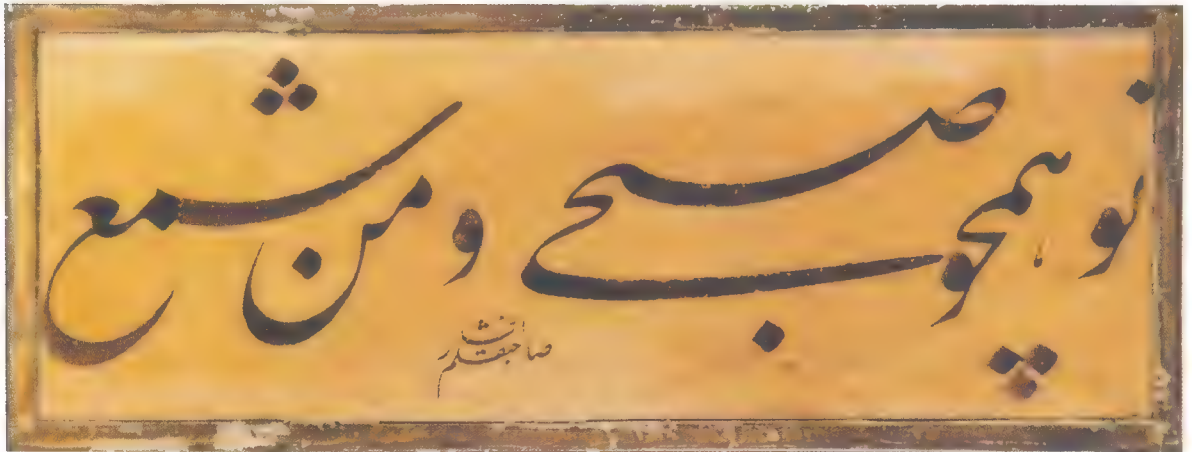 تو همچو صبحی و من شمع
صاحبقلم